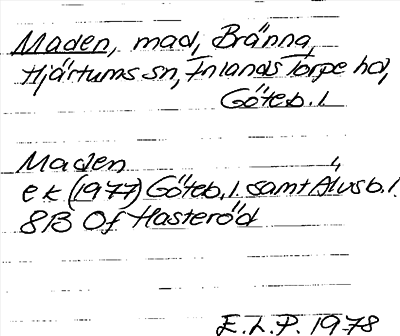 Maden, mad, Bränna,
Hjärtums sn, Inlands Torpe hd,
Göteb. l.
Maden "
ek (1977) Göteb. l. samt Älvsb. l.
8B 0f Hasteröd
E.L.P. 1978